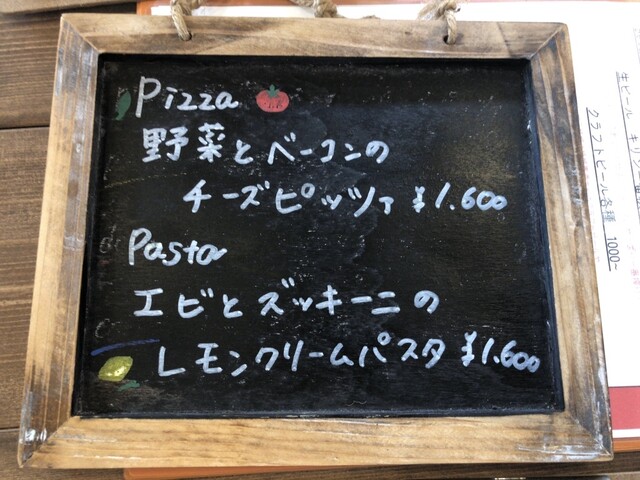 Pizza
野菜とベーコンの
チーズピッツァ ¥1.600
Pasta
エビとズッキーニの
レモンクリームパスタ ¥1.600
生ビール キリン
クラフトビール各種 1000~